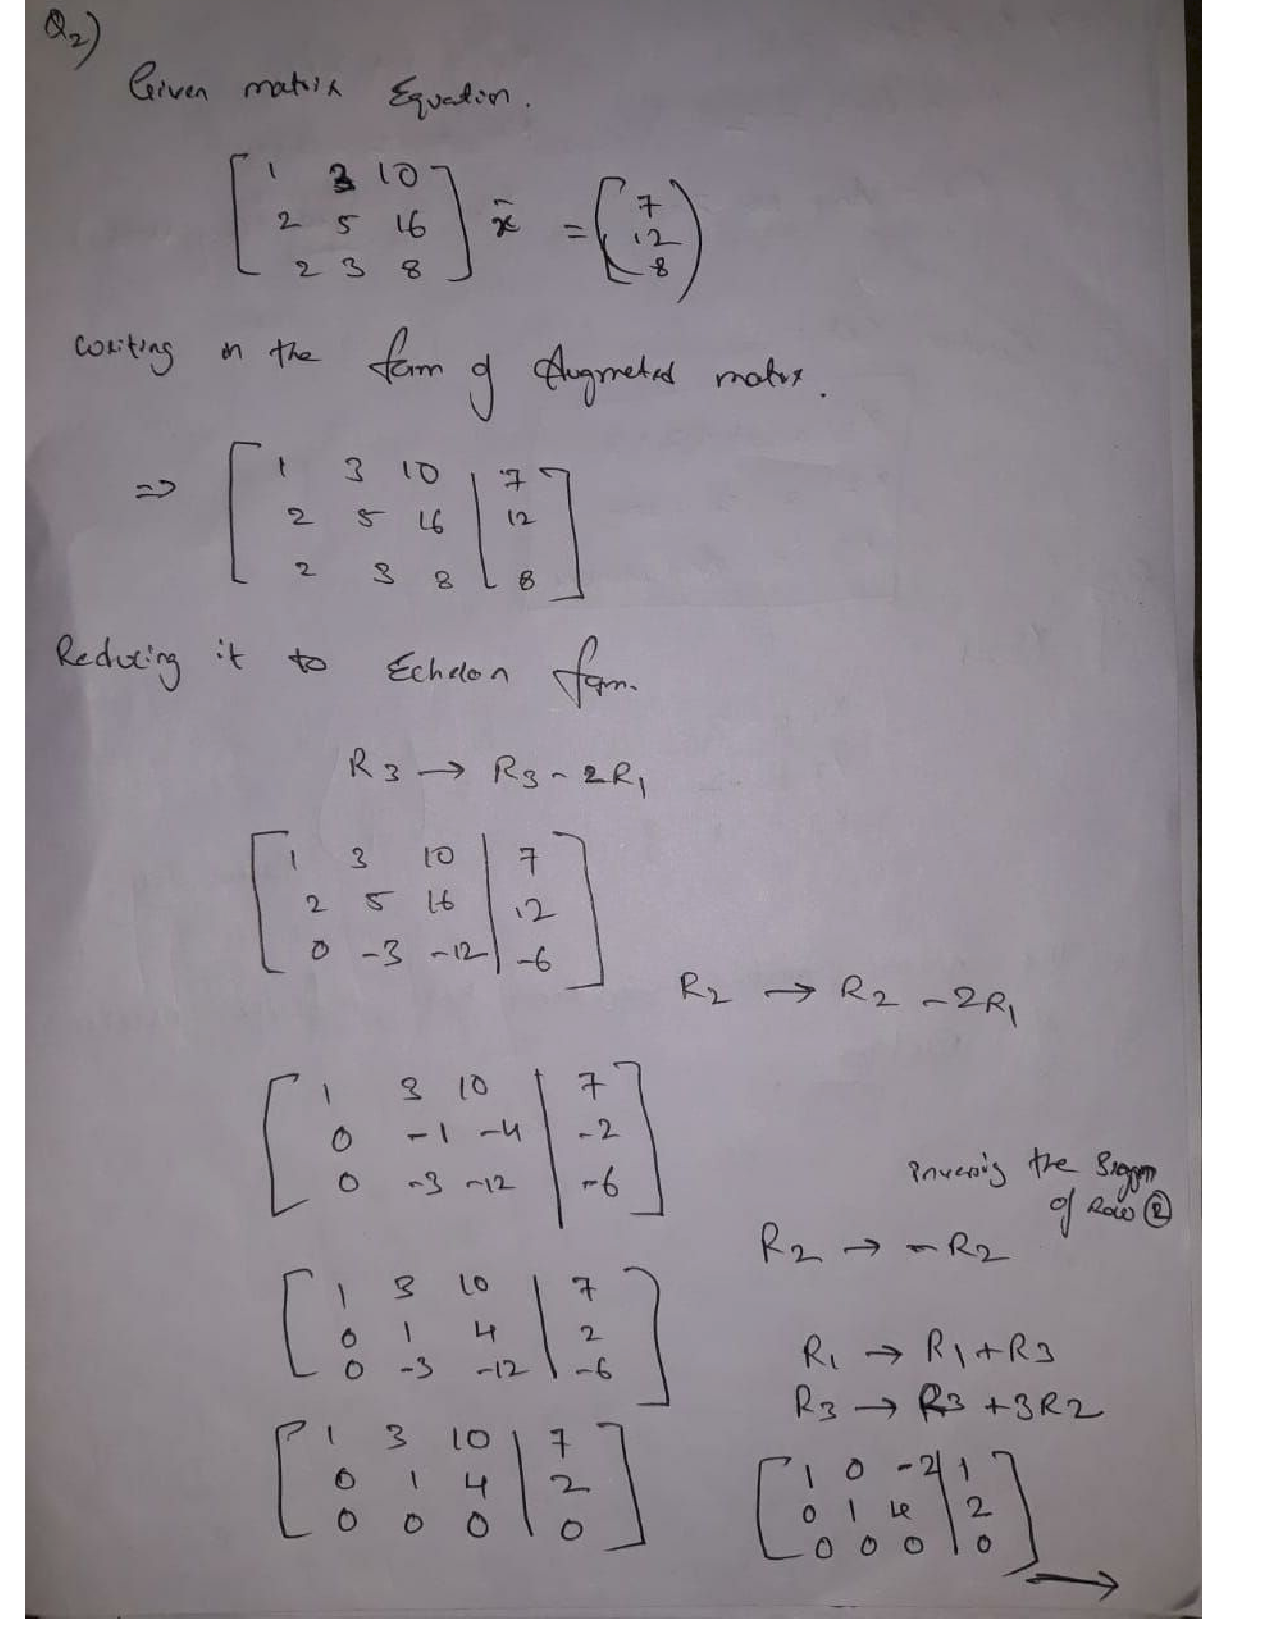 Q2)
Given matrix Equation.
[ 1 3 10
2 5 16
2 3 8 ] x̄ = ( 7
12
8 )
writing in the form of Augmeted matrix.
=> [ 1 3 10 | 7
2 5 16 | 12
2 3 8 | 8 ]
Reducing it to Echelon form.
R3 → R3 - 2R1
[ 1 3 10 | 7
2 5 16 | 12
0 -3 -12 | -6 ]
R2 → R2 - 2R1
[ 1 3 10 | 7
0 -1 -4 | -2
0 -3 -12 | -6 ]
the
of Row ②
R2 → -R2
[ 1 3 10 | 7
0 1 4 | 2
0 -3 -12 | -6 ]
R1 → R1 + R3
R3 → R3 + 3R2
[ 1 3 10 | 7
0 1 4 | 2
0 0 0 | 0 ]
[ 1 0 -2 | 1
0 1 4 | 2
0 0 0 | 0 ]
→